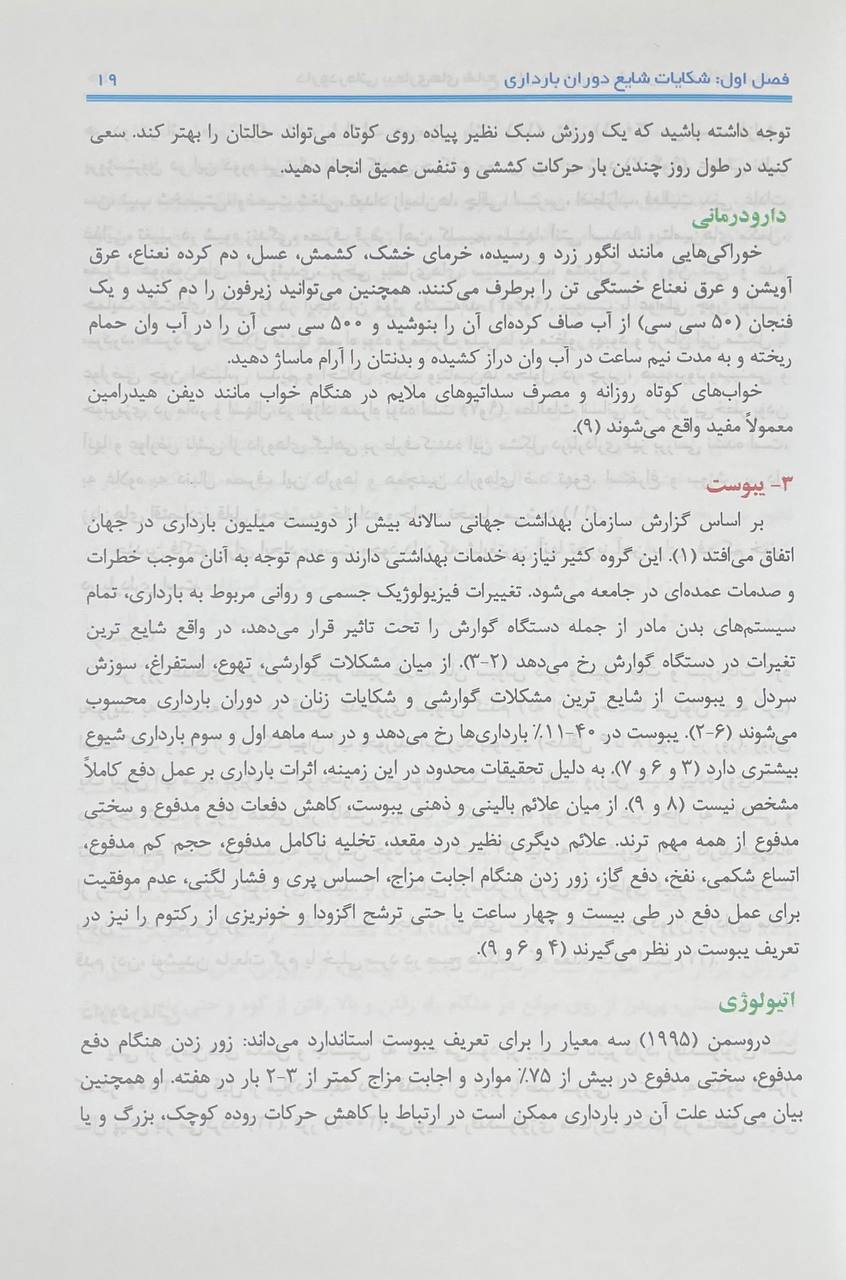 فصل اول: شکایات شایع دوران بارداری ۱۹
توجه داشته باشید که یک ورزش سبک نظیر پیاده روی کوتاه می‌تواند حالتان را بهتر کند. سعی
کنید در طول روز چندین بار حرکات کششی و تنفس عمیق انجام دهید.
دارودرمانی
خوراکی‌هایی مانند انگور زرد و رسیده، خرمای خشک، کشمش، عسل، دم کرده نعناع، عرق
آویشن و عرق نعناع خستگی تن را برطرف می‌کنند. همچنین می‌توانید زیرفون را دم کنید و یک
فنجان (۵۰ سی سی) از آب صاف کرده‌ای آن را بنوشید و ۵۰۰ سی سی آن را در آب وان حمام
ریخته و به مدت نیم ساعت در آب وان دراز کشیده و بدنتان را آرام ماساژ دهید.
خواب‌های کوتاه روزانه و مصرف سداتیوهای ملایم در هنگام خواب مانند دیفن هیدرامین
معمولاً مفید واقع می‌شوند (۹).
۳- یبوست
بر اساس گزارش سازمان بهداشت جهانی سالانه بیش از دویست میلیون بارداری در جهان
اتفاق می‌افتد (۱). این گروه کثیر نیاز به خدمات بهداشتی دارند و عدم توجه به آنان موجب خطرات
و صدمات عمده‌ای در جامعه می‌شود. تغییرات فیزیولوژیک جسمی و روانی مربوط به بارداری، تمام
سیستم‌های بدن مادر از جمله دستگاه گوارش را تحت تاثیر قرار می‌دهد، در واقع شایع ترین
تغیرات در دستگاه گوارش رخ می‌دهد (۲-۳). از میان مشکلات گوارشی، تهوع، استفراغ، سوزش
سردل و یبوست از شایع ترین مشکلات گوارشی و شکایات زنان در دوران بارداری محسوب
می‌شوند (۶-۲). یبوست در ۴۰-۱۱٪ بارداری‌ها رخ می‌دهد و در سه ماهه اول و سوم بارداری شیوع
بیشتری دارد (۳ و ۶ و ۷). به دلیل تحقیقات محدود در این زمینه، اثرات بارداری بر عمل دفع کاملاً
مشخص نیست (۸ و ۹). از میان علائم بالینی و ذهنی یبوست، کاهش دفعات دفع مدفوع و سختی
مدفوع از همه مهم ترند. علائم دیگری نظیر درد مقعد، تخلیه ناکامل مدفوع، حجم کم مدفوع،
اتساع شکمی، نفخ، دفع گاز، زور زدن هنگام اجابت مزاج، احساس پری و فشار لگنی، عدم موفقیت
برای عمل دفع در طی بیست و چهار ساعت یا حتی ترشح اگزودا و خونریزی از رکتوم را نیز در
تعریف یبوست در نظر می‌گیرند (۴ و ۶ و ۹).
اتیولوژی
دروسمن (۱۹۹۵) سه معیار را برای تعریف یبوست استاندارد می‌داند: زور زدن هنگام دفع
مدفوع، سختی مدفوع در بیش از ۷۵٪ موارد و اجابت مزاج کمتر از ۳-۲ بار در هفته. او همچنین
بیان می‌کند علت آن در بارداری ممکن است در ارتباط با کاهش حرکات روده کوچک، بزرگ و یا